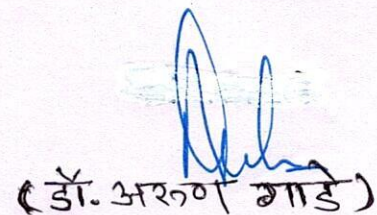 (डॉ. अरुण गाडे)